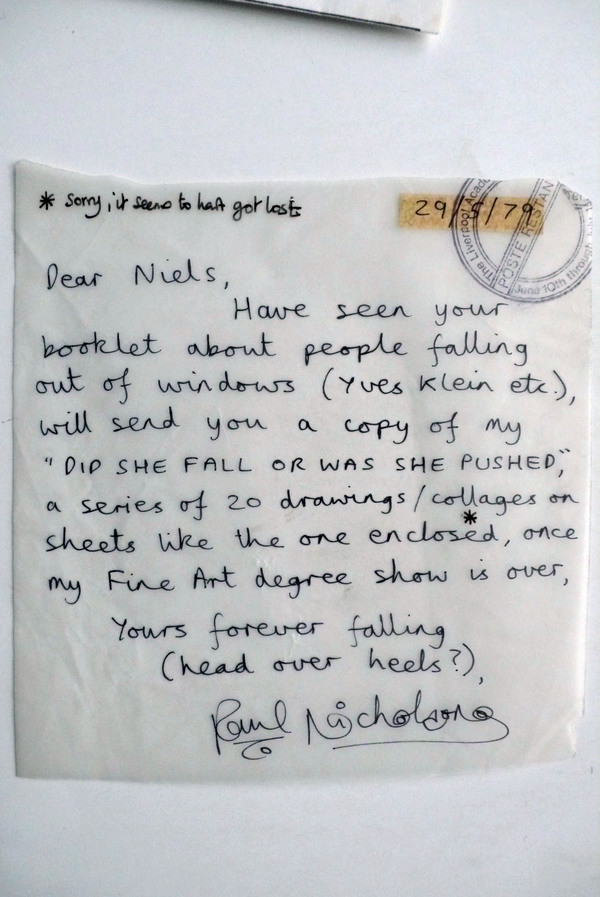 * Sorry, it seems to have got lost
29/5/79
The Liverpool Acad
POSTE RESTAN
June 10th through
Dear Niels,
Have seen your
booklet about people falling
out of windows (Yves Klein etc.),
will send you a copy of my
"DID SHE FALL OR WAS SHE PUSHED,"
a series of 20 drawings/collages on
sheets like the one enclosed*, once
my Fine Art degree show is over,
Yours forever falling
(head over heels?),
Paul Nicholson